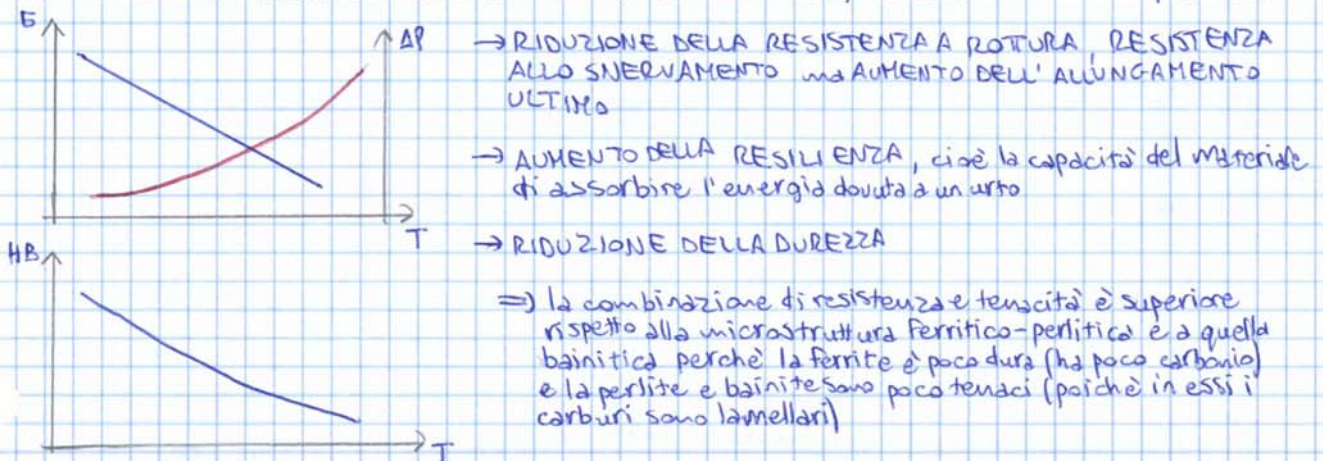 σ
Δl
→ RIDUZIONE DELLA RESISTENZA A ROTTURA, RESISTENZA
ALLO SNERVAMENTO ma AUMENTO DELL'ALLUNGAMENTO
ULTIMO
→ AUMENTO DELLA RESILIENZA, cioè la capacità del materiale
di assorbire l'energia dovuta a un urto
T
→ RIDUZIONE DELLA DUREZZA
HB
⇒ la combinazione di resistenza e tenacità è superiore
rispetto alla microstruttura ferritico-perlitica e a quella
bainitica perchè la ferrite è poco dura (ha poco carbonio)
e la perlite e bainite sono poco tenaci (poichè in essi i
carburi sono lamellari)
T